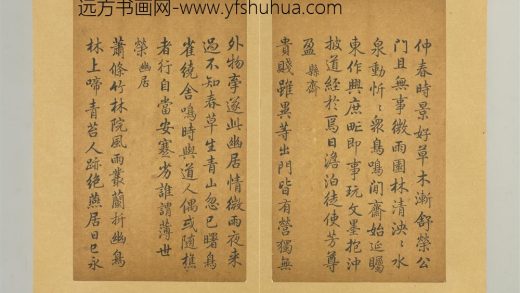 远方书画网-www.yfshuhua.com.
仲春時景好草木漸舒榮公
門且無事微雨園林清泱〻水
泉動忻〻衆鳥鳴閒齋始延矚
東作興庶甿即事玩文墨抱沖
披道經於焉日澹泊徒使芳尊
盈 縣齋
貴賤雖異等出門皆有營獨無
外物牽遂此幽居情微雨夜來
過不知春草生青山忽已曙鳥
雀繞舍鳴時與道人偶或隨樵
者行自當安蹇劣誰謂薄世
榮 幽居
蕭條竹林院風雨叢蘭折幽鳥
林上啼青苔人跡絕燕居日已永